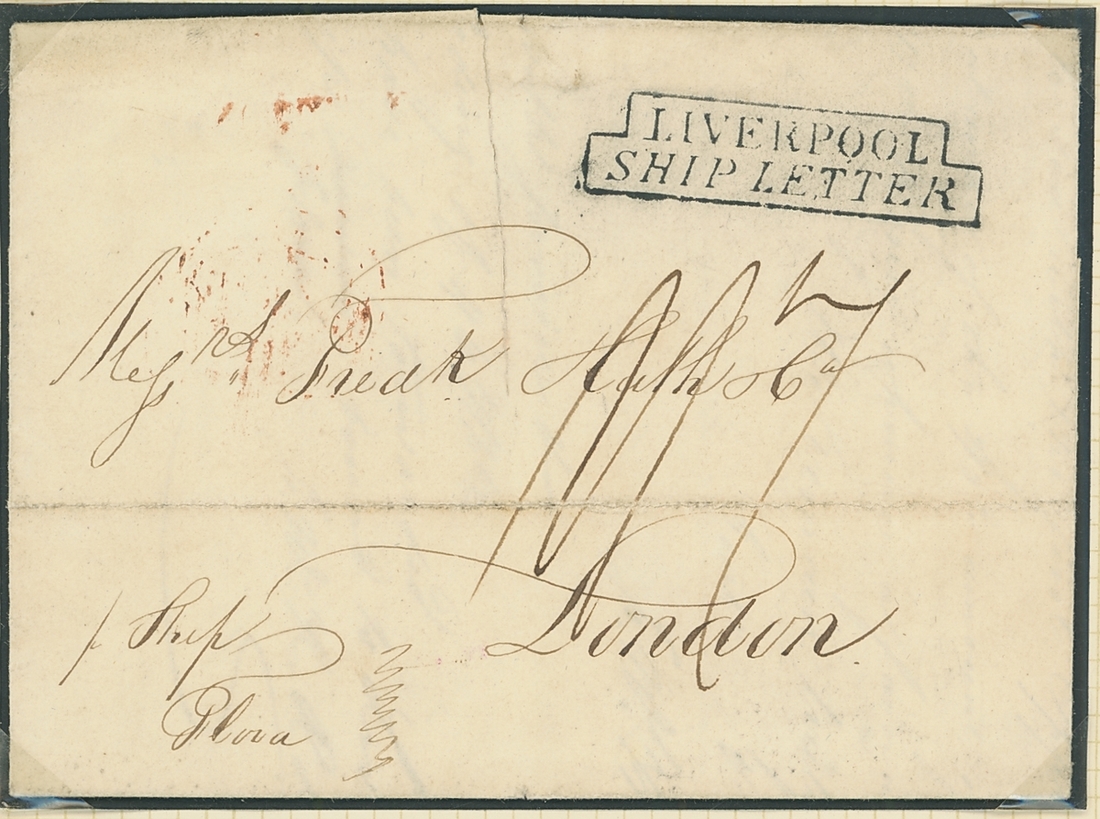 LIVERPOOL
SHIP LETTER
Messrs. Fredk Huth & Co
London
p Ship
Flora